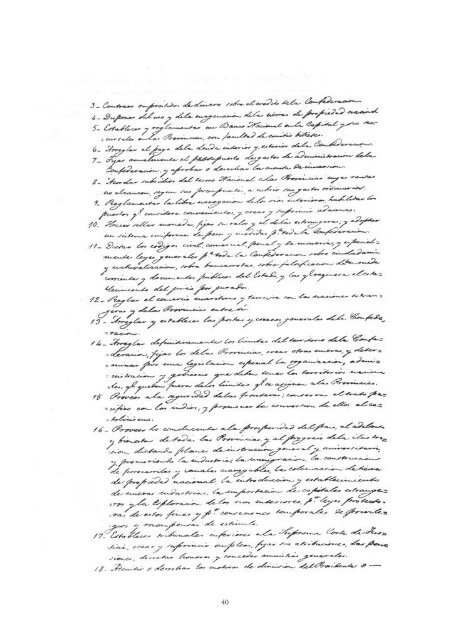 3_ Contraer emprestitos de dinero sobre el credito de la Confederacion
4_ Disponer del uso y de la enagenacion de las tierras de propiedad nacional
5_ Establecer y reglamentar un Banco Nacional en la Capital y sus su-
cursales en las Provincias, con facultad de emitir billetes.
6_ Arreglar el pago de la deuda interior y exterior de la Confederacion
7_ Fijar anualmente el presupuesto de gastos de administracion de la
Confederacion y aprobar o desechar la cuenta de inversion.
8_ Acordar subsidios del tesoro Nacional a las Provincias cuyas rentas
no alcancen, segun sus presupuestos, a cubrir sus gastos ordinarios
9_ Reglamentar la libre navegacion de los rios interiores, habilitar los
puertos qe considere convenientes, y crear y suprimir aduanas.
10_ Hacer sellar moneda, fijar su valor y el de las estrangeras, y adoptar
un sistema uniforme de pesos y medidas pa toda la Confederacion.
11_ Dictar los codigos civil, comercial, penal y de mineria, y especial-
mente leyes generales pa toda la Confederacion sobre ciudadania
y naturalizacion, sobre bancarrotas, sobre falsificacion de la moneda
corriente y documentos publicos del Estado, y las qe requiera el esta-
blecimiento del juicio por jurados.
12_ Reglar el comercio maritimo y terrestre con las naciones estran-
geras y de las Provincias entre si
13_ Arreglar y establecer las postas y correos generales de la Confede-
racion
14_ Arreglar definitivamente los limites del territorio de la Confe-
deracion, fijar los de las Provincias, crear otras nuevas, y deter-
minar por una legislacion especial la organizacion, admi-
nistracion y gobierno que deben tener los territorios naciona-
les, qe queden fuera de los limites qe se asignen a las Provincias.
15 Proveer a la seguridad de las fronteras; conservar el trato pa-
cifico con los indios, y promover la conversion de ellos al ca-
tolicismo.
16_ Proveer lo conducente a la prosperidad del pais, al adelanto
y bienestar de todas las Provincias, y al progreso de la ilustra-
cion, dictando planes de instruccion general y universitaria,
y promoviendo la industria, la inmigracion, la construccion
de ferrocarriles y canales navegables, la colonizacion de tierras
de propiedad nacional, la introduccion y establecimiento
de nuevas industrias, la importacion de capitales estrange-
ros y la esploracion de los rios interiores, pr leyes protecto-
ras de estos fines y pr concesiones temporales de privile-
gios y recompensas de estimulo.
17_ Establecer tribunales inferiores a la Suprema Corte de Jus-
ticia, crear y suprimir empleos, fijar sus atribuciones, dar pen-
siones, decretar honores y conceder amnistias generales.
18_ Admitir o desechar los motivos de dimision del Presidente o
40